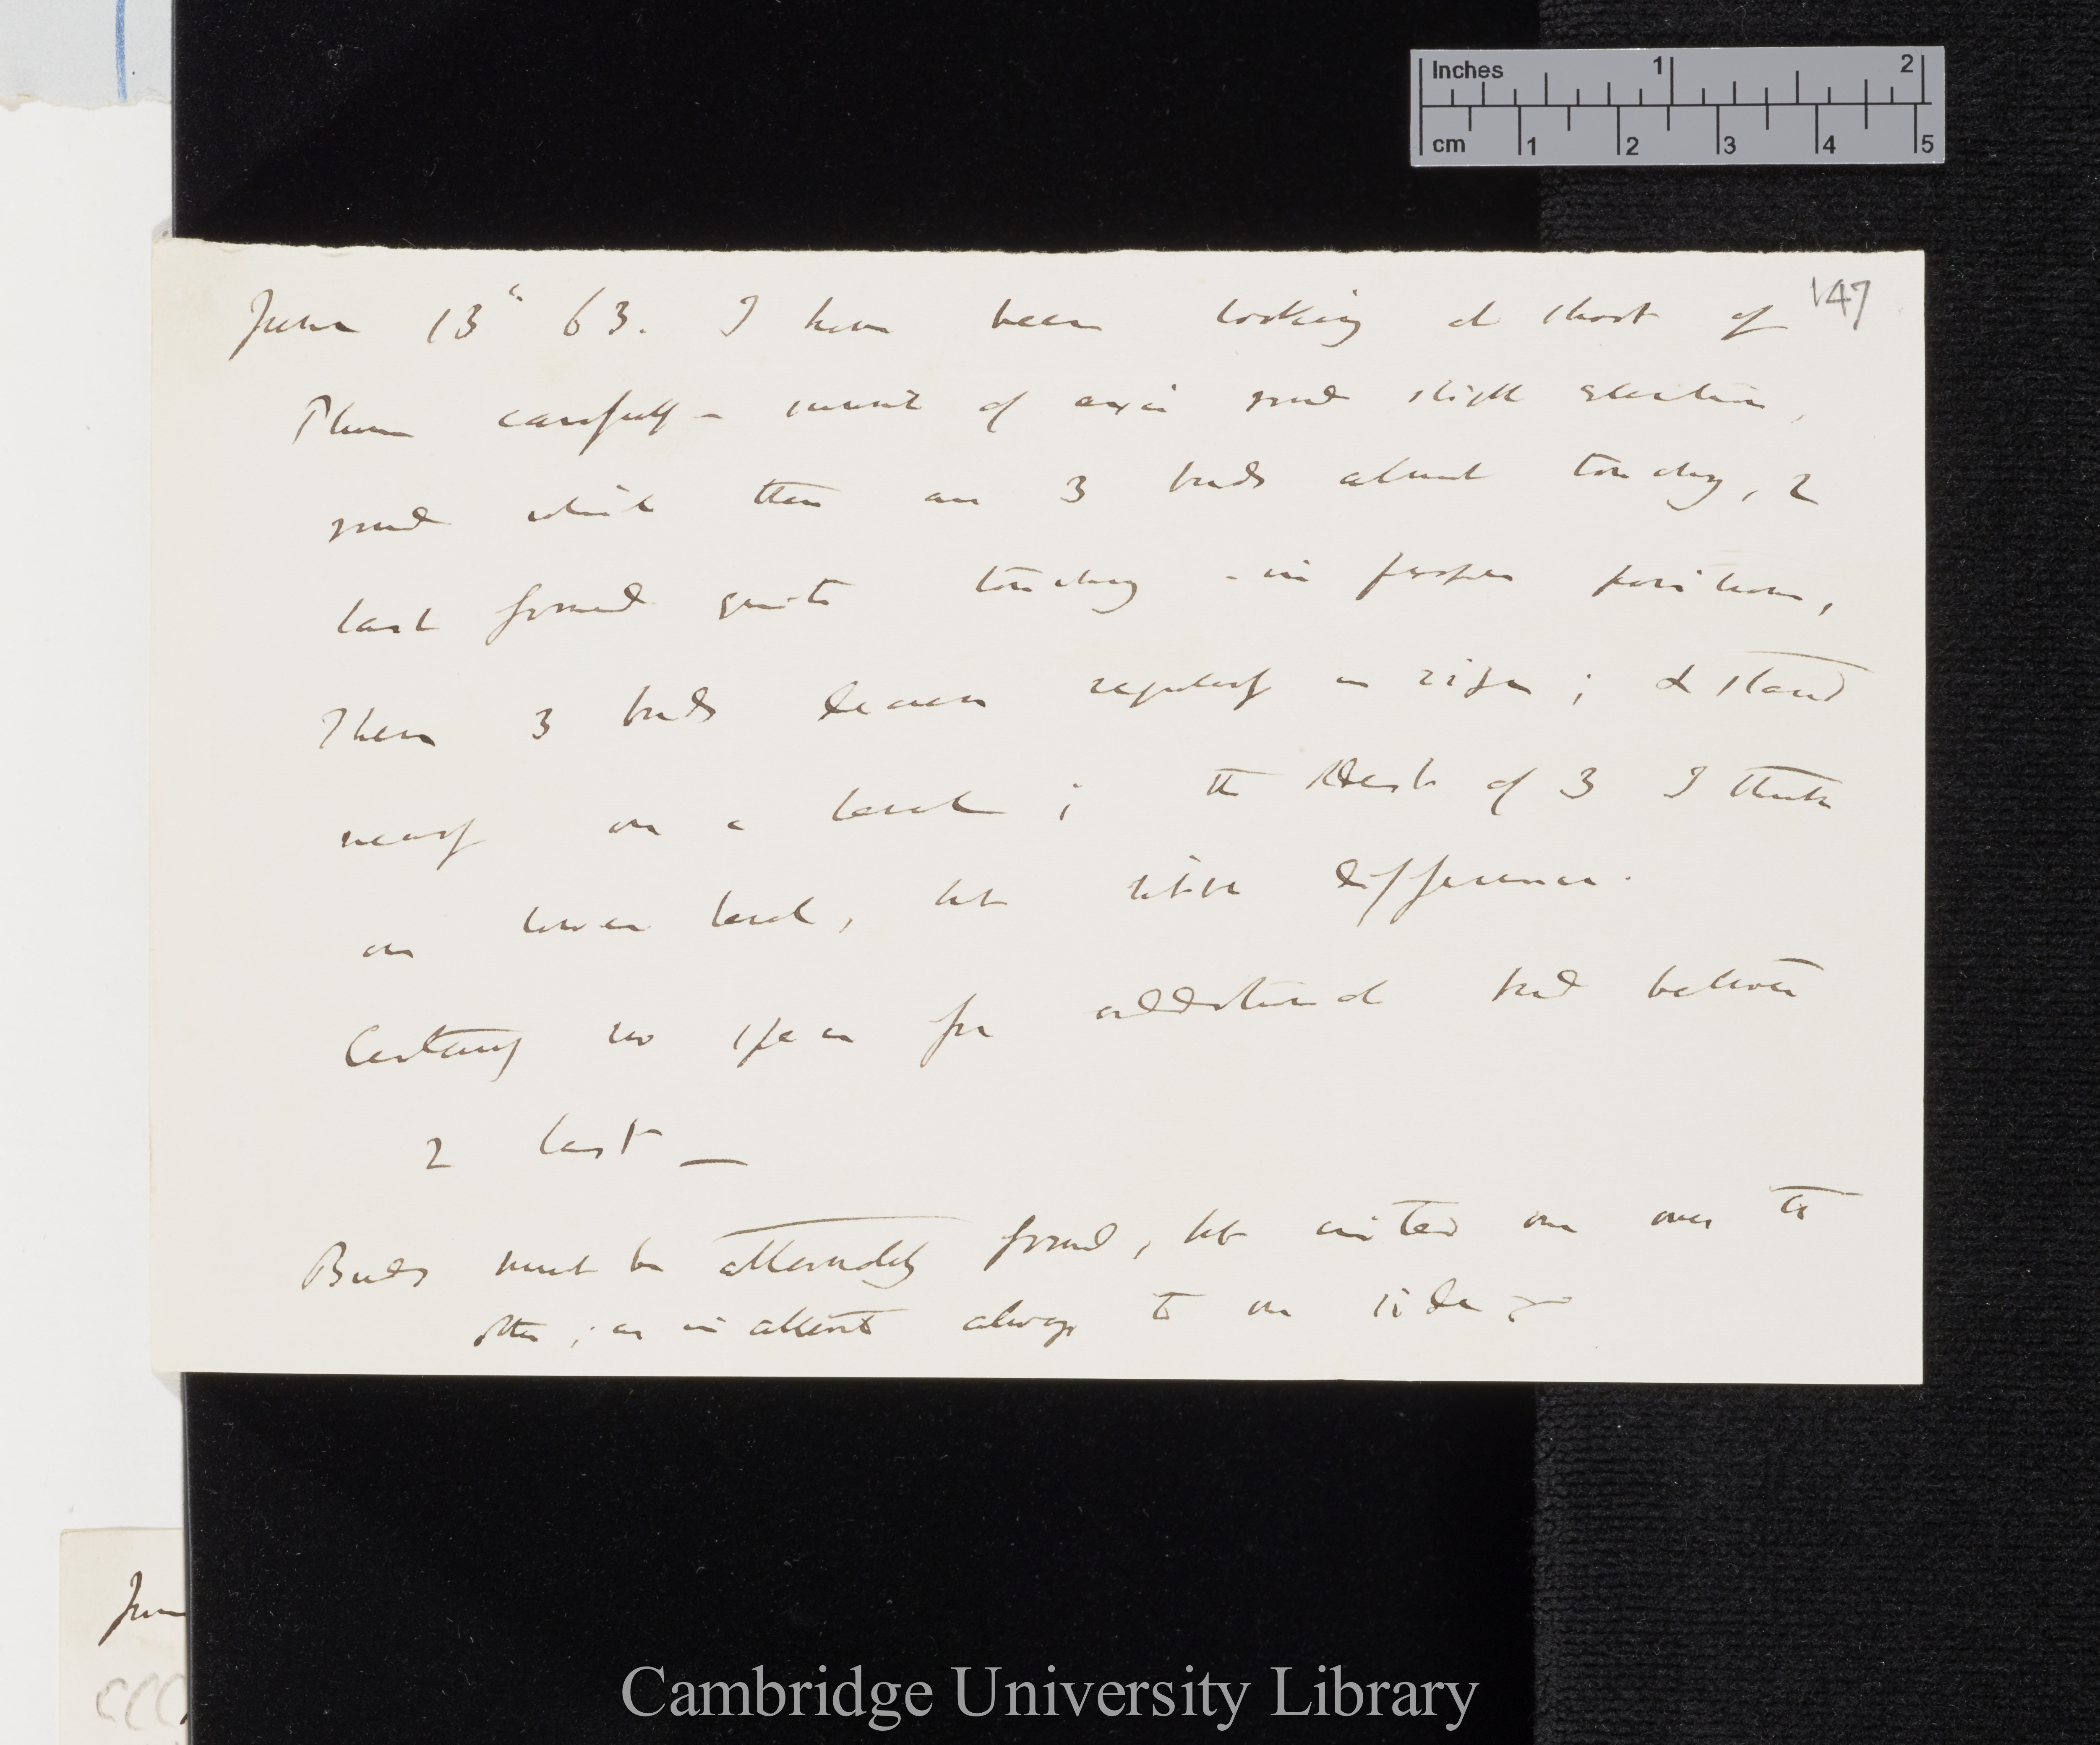 Inches 1 2
cm 1 2 3 4 5
147
June 13th 63. I have been looking at shoot of
Plum carefully – summit of axis round slight elevation,
round which there are 3 buds almost touching, 2
last formed quite touching – in proper position,
These 3 buds decrease regularly in size; & stand
nearly on a level; the oldest of 3 I think
on lower level, but little difference.
Certainly no space for additional bud between
2 last —
Buds must be alternately formed, but united one over the
other; as in always to one side
Jun
CCC
Cambridge University Library